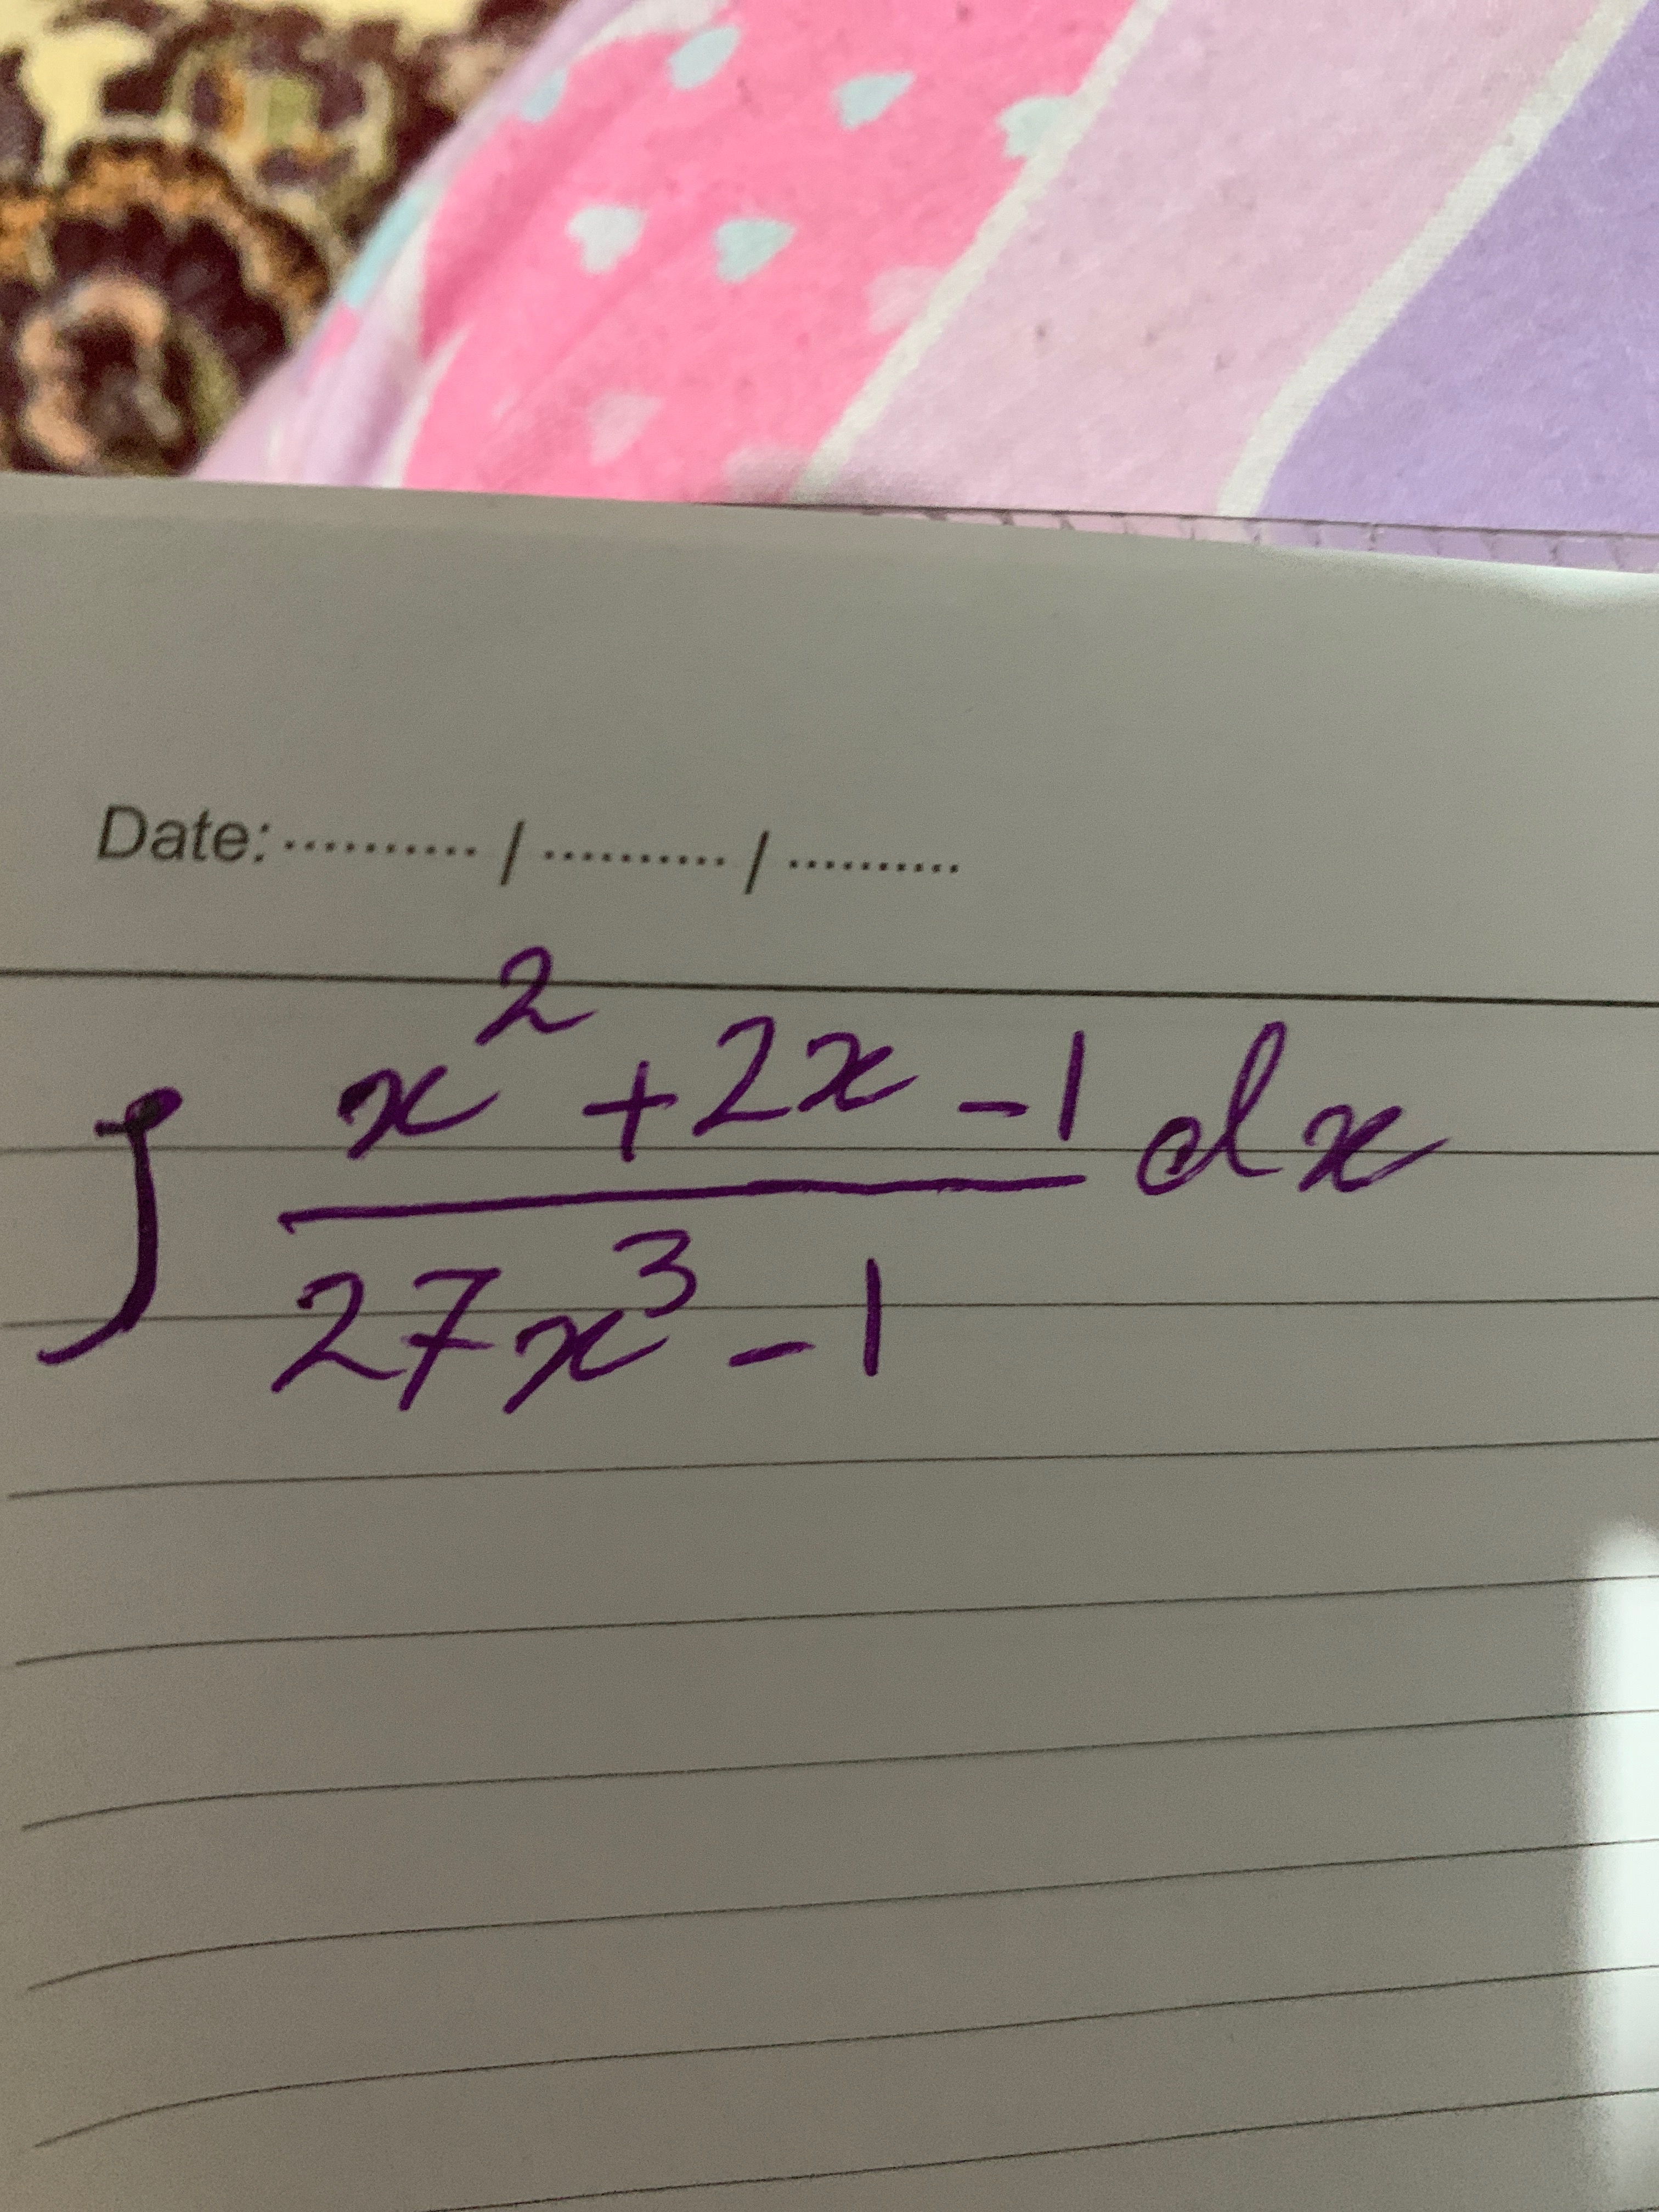 Date: .......... / .......... / ..........
∫ (x² + 2x - 1)/(27x³ - 1) dx